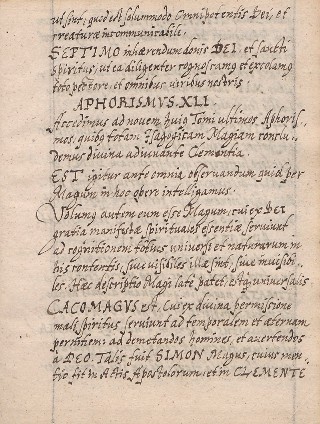 ut sunt; quod est solummodo Omnipotentis Dei, et
creaturae incommunicabile.
SEPTIMO inhaerendum donis DEI, et sancti
spiritus, ut ea diligenter cognoscamq et excolamq
toto pectore, et omnibus viribus nostris.
APHORISMVS. XLI.
Accedimus ad novem huiq Tomi ultimos Aphoris-
mos, quibq totam Isagogicam Magiam conclu-
demus divina adiuvante Clementia.
EST igitur ante omnia observandum quid per
Magum in hoc opere intelligamus.
Volumq autem eum esse Magum, cui ex DEI
gratia manifestae spirituales essentiae serviunt
ad cognitionem totius universi et naturarum in
his contentis, sive visibiles illae sint, sive invisibi-
les. Haec descriptio Magi late patet, Estq universalis
CACOMAGUS est, Cui ex divina permissione
mali spiritus serviunt ad temporalem et aeternam
perniciem: ad dementandos homines, et avertendos
a DEO. Talis fuit SIMON Magus, cuius men-
tio fit in Actis Apostolorum: et in CLEMENTE